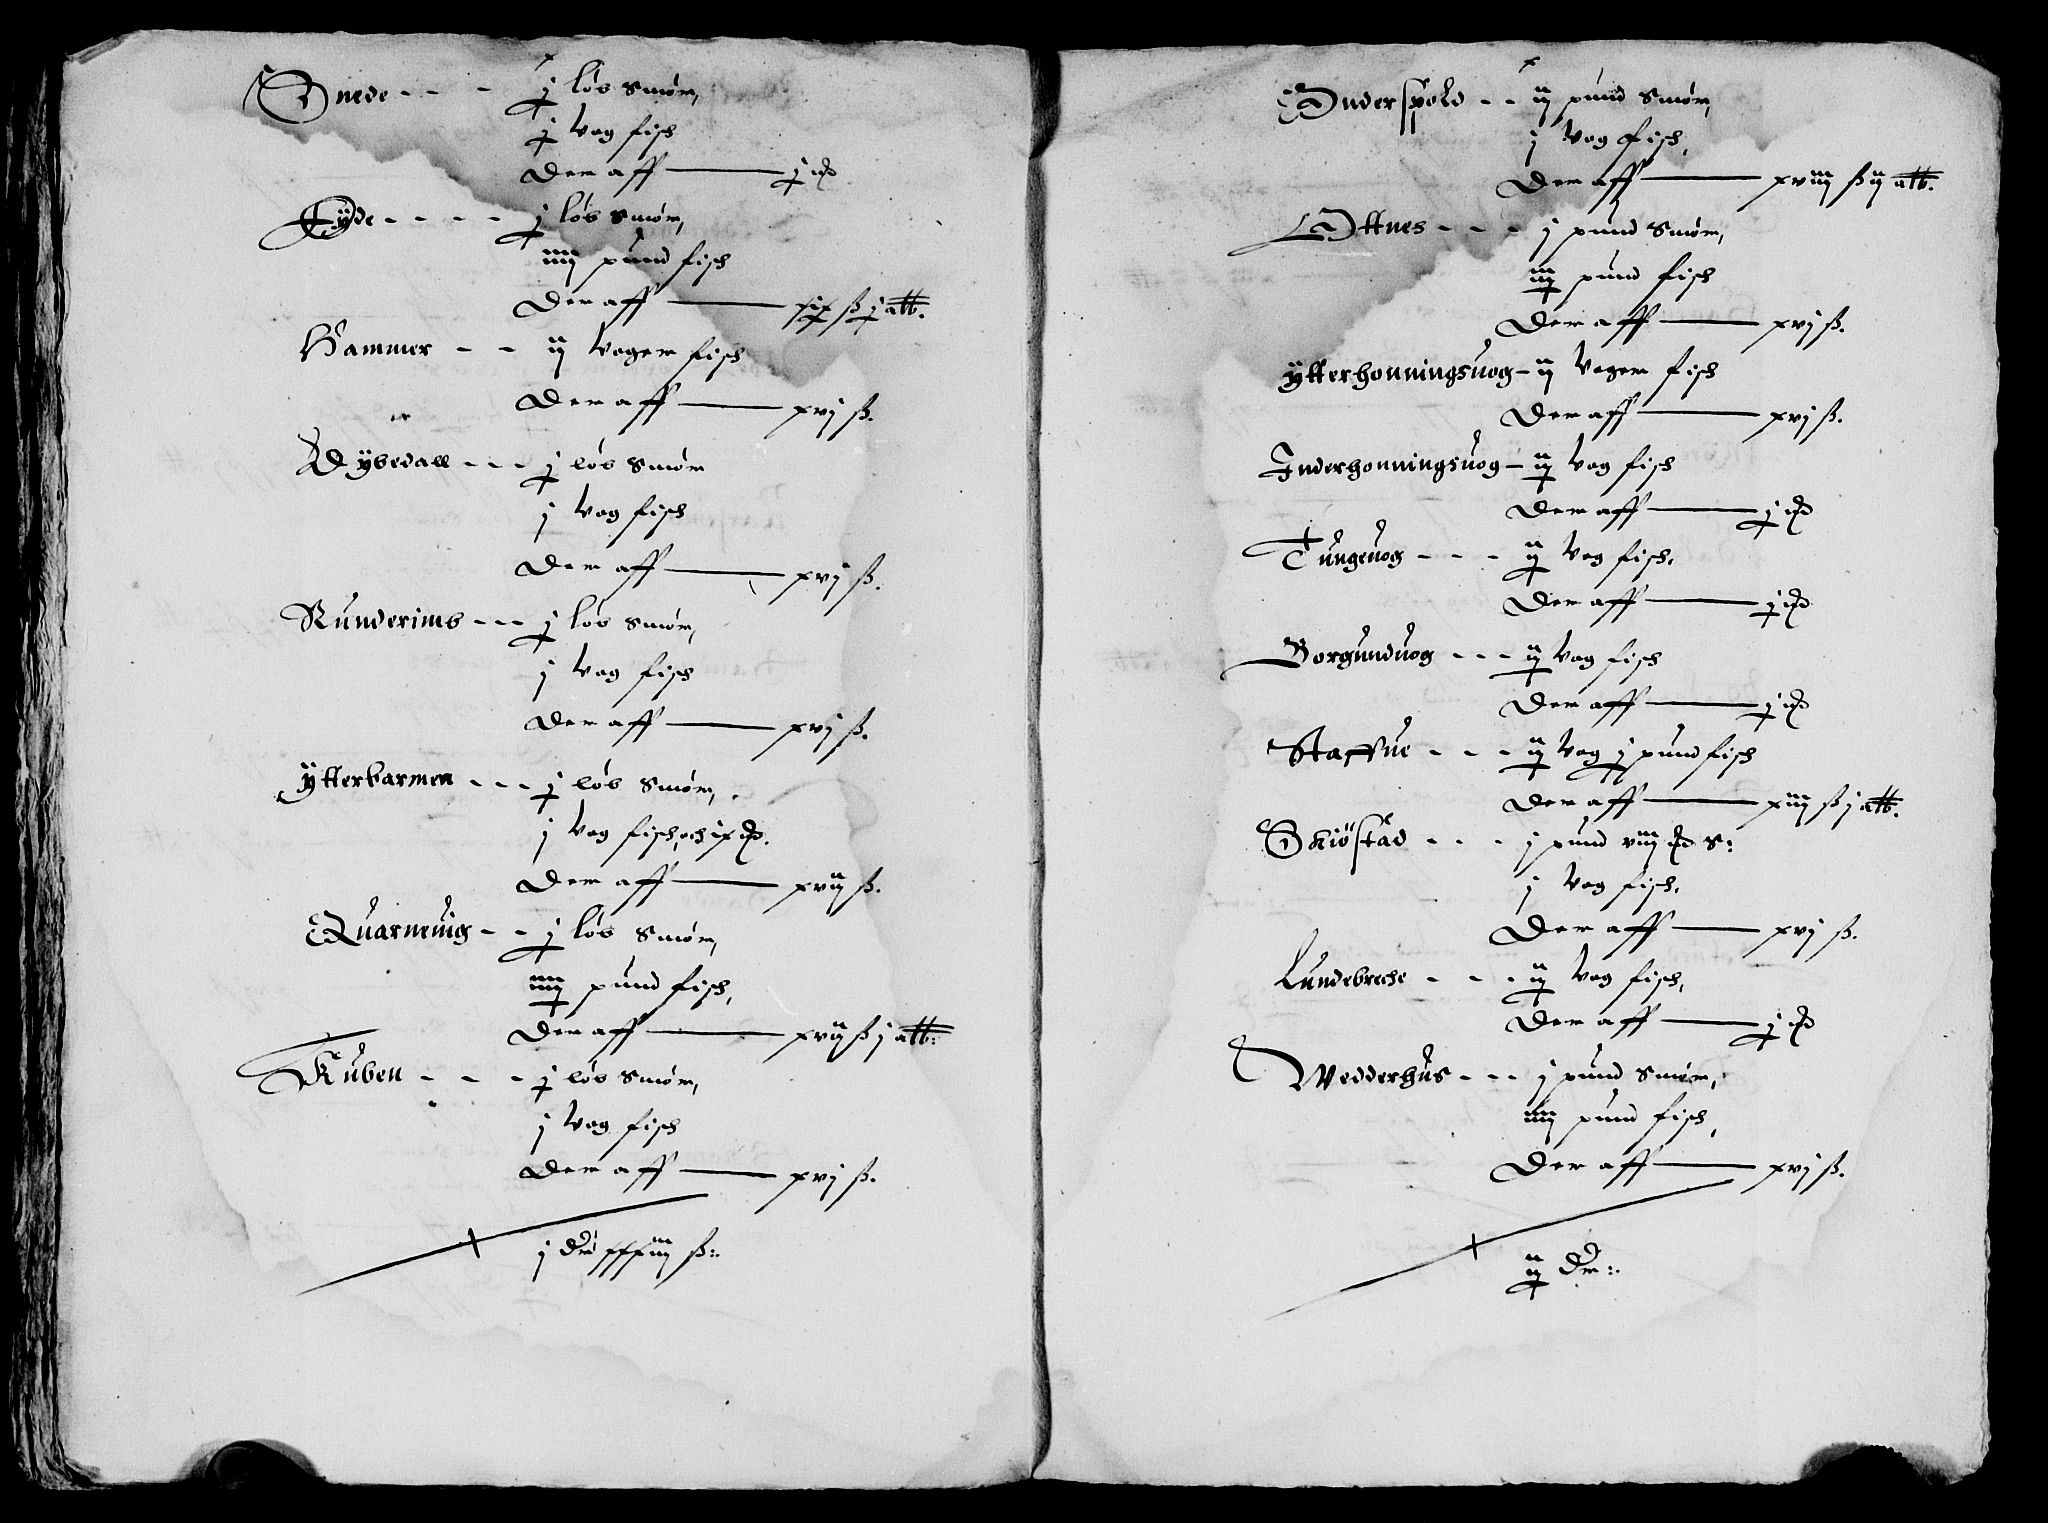 Snede - - - j løb Smør,
j Vog fisch
Der aff —— j dr
Eÿde - - - - j løb Smør,
iiij pund fisch
Der aff —— xix ß j alb.
Hammer - - ij Voger fisch
Der aff —— xvj ß.
Dÿbedall - - - j løb Smør
j Vog fisch
Der aff —— xvj ß.
Runderims - - - j løb Smør,
j Vog fisch
Der aff —— xvj ß.
ÿtterbarmen - - - j løb Smør,
j Vog fisch, och ix
Der aff —— xvij ß.
Quarneuig - - j løb Smør,
iiij pund fisch,
Der aff —— xvij ß j alb:
Kuben - - - j løb Smør,
j Vog fisch
Der aff —— xvj ß.
j dr xxxiij ß:
Inderspold - - ij pund Smør,
j Vog fisch,
Der aff —— xviij ß ij alb.
Ottnes - - - j pund Smør,
iij pund fisch
Der aff —— xvj ß.
ÿtterhonningsuog - ij Voger fisch
Der aff —— xvj ß.
Inderhonningsuog - ij Vog fisch
Der aff —— j dr
Tungeuog - - - ij Vog fisch.
Der aff —— j dr
Borgunduog - - - ij Vog fisch
Der aff —— j dr
Staffue - - - ij Vog j pund fisch
Der aff —— xiij ß j alb.
Skiöstad - - - j pund viij S:
j Vog fisch.
Der aff —— xvj ß.
Lundebreche - - - ij Vog fisch,
Der aff —— j dr
Wedderhus - - - j pund Smør,
iiij pund fisch,
Der aff —— xvj ß.
ij dr: